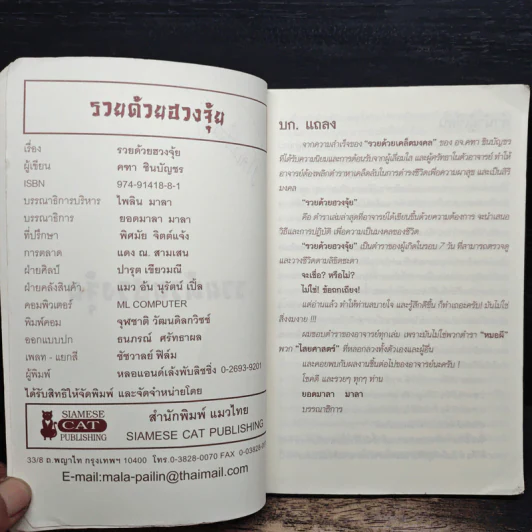 รวยด้วยฮวงจุ้ย
เรื่อง รวยด้วยฮวงจุ้ย
ผู้เขียน คฑา ชินบัญชร
ISBN 974-91418-8-1
บรรณาธิการบริหาร ไพลิน มาลา
บรรณาธิการ ยอดมาลา มาลา
ที่ปรึกษา พิศมัย จิตต์แจ้ง
การตลาด แดง ณ. สามเสน
ฝ่ายศิลป์ ปารุต เขียวมณี
ฝ่ายคลังสินค้า แมว อัน นุรัตน์ เปิ้ล
คอมพิวเตอร์ ML COMPUTER
พิมพ์คอม จุฬชาติ วัฒนดิลกวิชช์
ออกแบบปก ธนภรณ์ ศรัทธาผล
เพลท - แยกสี ชัชวาลย์ ฟิล์ม
ผู้พิมพ์ หลอแอนด์เล้งพับลิชชิ่ง 0-2693-9201
ได้รับสิทธิให้จัดพิมพ์ และจัดจำหน่ายโดย
SIAMESE CAT PUBLISHING
สำนักพิมพ์ แมวไทย
SIAMESE CAT PUBLISHING
33/8 ถ.พญาไท กรุงเทพฯ 10400 โทร.0-3828-0070 FAX 0-03828-0
E-mail:mala-pailin@thaimail.com
บก. แถลง
จากความสำเร็จของ "รวยด้วยเคล็ดมงคล" ของ อจ.คฑา ชินบัญชร
ที่ได้รับความนิยมและการต้อนรับจากผู้เลื่อมใส และผู้ศรัทธาในตัวอาจารย์ ทำให้
อาจารย์ต้องพลิกตำราหาเคล็ดลับในการดำรงชีวิตเพื่อความผาสุข และเป็นสิริ
มงคล
"รวยด้วยฮวงจุ้ย"
คือ ตำราเล่มล่าสุดที่อาจารย์ได้เขียนขึ้นด้วยความต้องการ จะนำเสนอ
วิธีและการปฏิบัติ เพื่อความเป็นมงคลของชีวิต
"รวยด้วยฮวงจุ้ย" เป็นตำราของผู้เกิดในรอบ 7 วัน ที่สามารถตรวจดู
และวางชีวิตตามลิขิตชะตา
จะเชื่อ? หรือไม่?
ไม่ใช่! ข้อถกเถียง!
แต่อ่านแล้ว ทำให้ท่านสบายใจ และรู้สึกดีขึ้น ก็ทำเถอะครับ! มันไม่ใช่
สิ่งงมงาย !!!
ผมชอบตำราของอาจารย์ทุกเล่ม เพราะมันไม่ใช่พวกตำรา "หมอผี"
พวก "ไสยศาสตร์" ที่หลอกลวงทั้งตัวเองและผู้อื่น
และคอยพบกับผลงานชิ้นต่อไปของอาจารย์นะครับ !
โชคดี และรวยๆ ทุกๆ ท่าน
ยอดมาลา มาลา
บรรณาธิการ